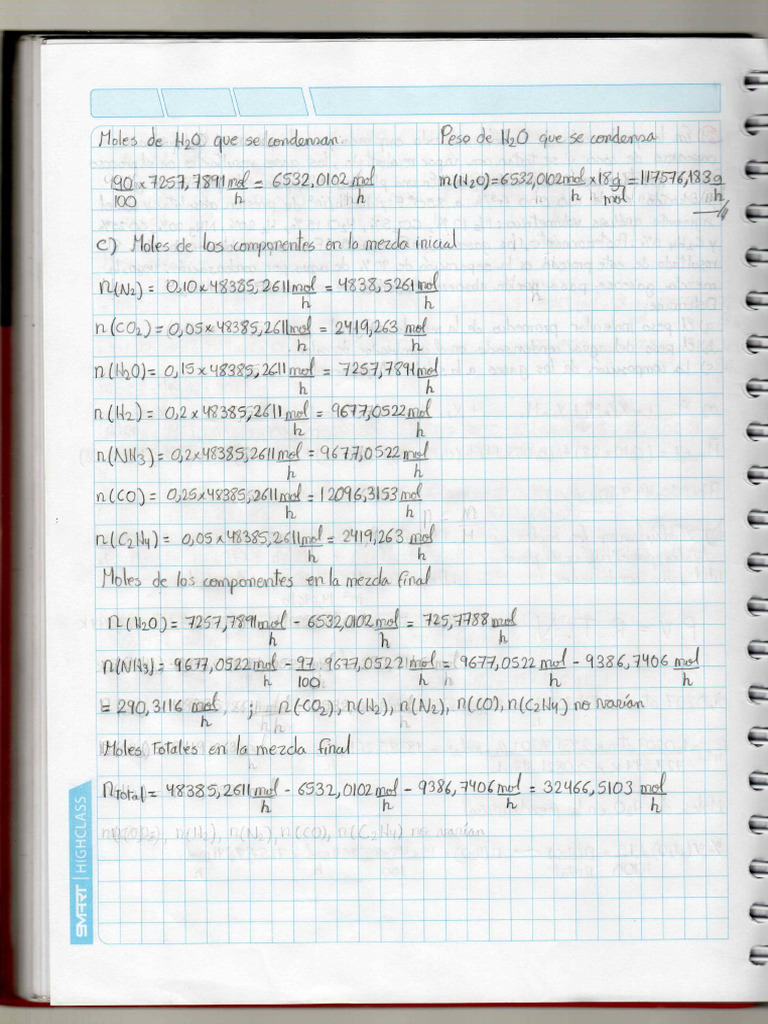 Moles de H2O que se condensan
90/100 x 7257,7891 mol/h = 6532,0102 mol/h
Peso de H2O que se condensa
m(H2O)=6532,0102 mol/h x 18 g/mol = 117576,183 g/h
c) Moles de los componentes en la mezcla inicial
n(N2) = 0,10 x 48385,2611 mol/h = 4838,5261 mol/h
n(CO2) = 0,05 x 48385,2611 mol/h = 2419,263 mol/h
n(H2O) = 0,15 x 48385,2611 mol/h = 7257,7891 mol/h
n(H2) = 0,2 x 48385,2611 mol/h = 9677,0522 mol/h
n(NH3) = 0,2 x 48385,2611 mol/h = 9677,0522 mol/h
n(CO) = 0,25 x 48385,2611 mol/h = 12096,3153 mol/h
n(C2H4) = 0,05 x 48385,2611 mol/h = 2419,263 mol/h
Moles de los componentes en la mezcla final
n(H2O) = 7257,7891 mol/h - 6532,0102 mol/h = 725,7788 mol/h
n(NH3) = 9677,0522 mol/h - 97/100 . 9677,0522 mol/h = 9677,0522 mol/h - 9386,7406 mol/h
= 290,3116 mol/h ; n(CO2), n(H2), n(N2), n(CO), n(C2H4) no varían
Moles Totales en la mezcla final
nTotal = 48385,2611 mol/h - 6532,0102 mol/h - 9386,7406 mol/h = 32466,5103 mol/h
n(CO2), n(H2), n(N2), n(CO), n(C2H4) no varían
SMART | HIGHCLASS